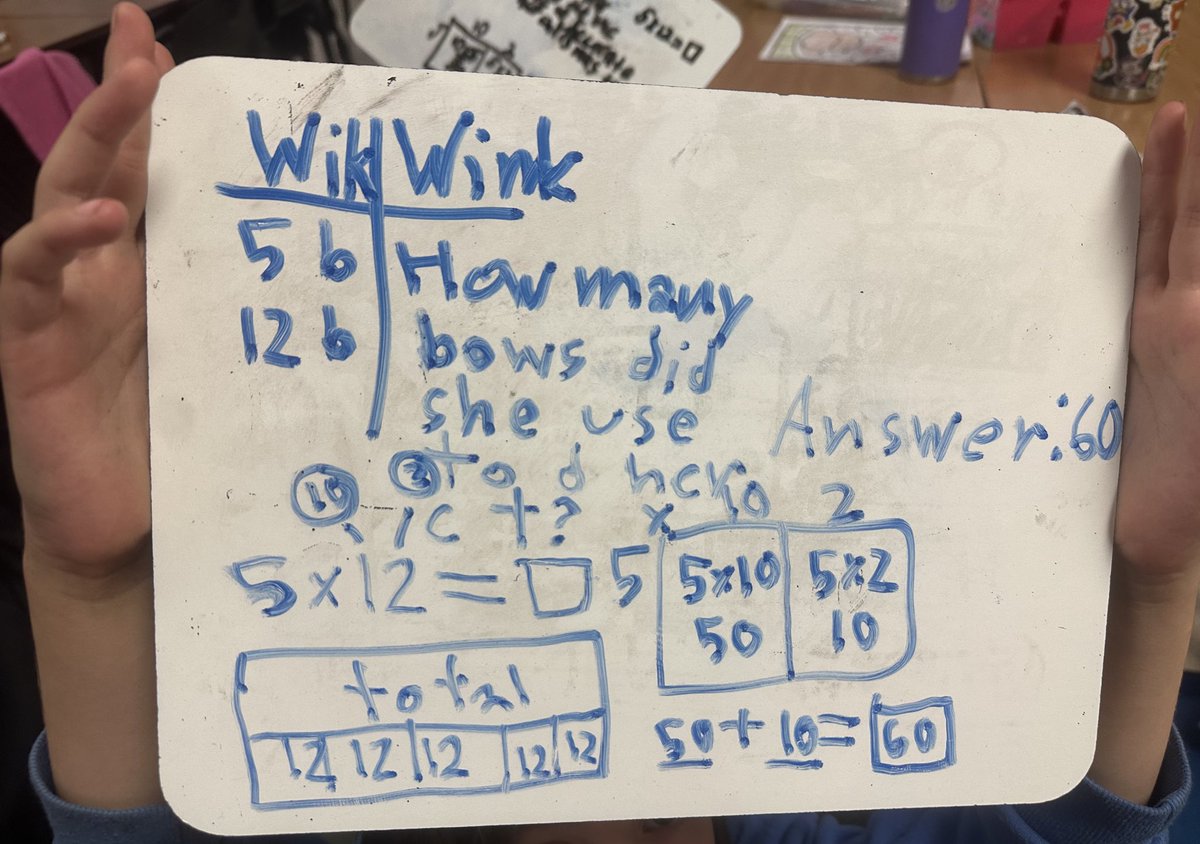 Wik Wink
5 b How many
12 b bows did
she use
Answer:60
10 2
5 x 12 = □
x 10 2
5 5x10 5x2
50 10
total
12 12 12 12 12
50 + 10 = 60
5x12=□